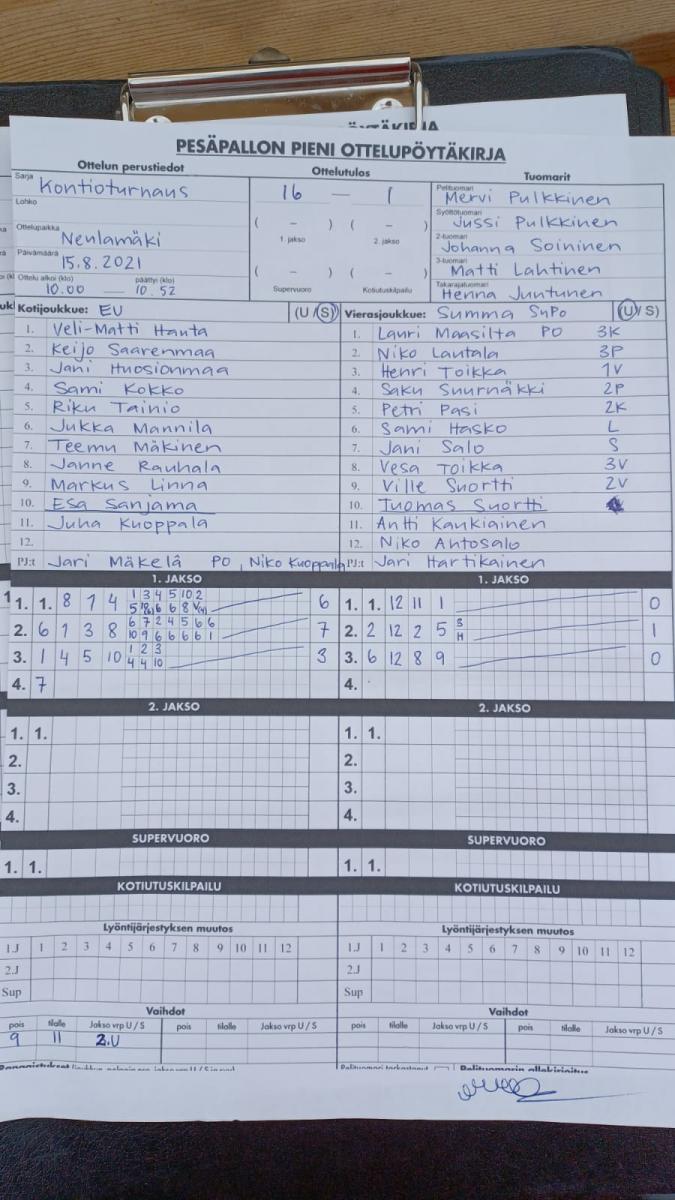 PESÄPALLON PIENI OTTELUPÖYTÄKIRJA
Ottelun perustiedot
Sarja Kontioturnaus
Lohko
Ottelupaikka Neulamäki
Päivämäärä 15.8.2021
Ottelu alkoi (klo) 10.00 päättyi (klo) 10.52
Ottelutulos
16 — 1
( – ) ( – )
1. jakso 2. jakso
( – ) ( – )
Supervuoro Kotiutuskilpailu
Tuomarit
Pelituomari Mervi Pulkkinen
Syöttötuomari Jussi Pulkkinen
2-tuomari Johanna Soininen
3-tuomari Matti Lahtinen
Takarajatuomari Henna Juntunen
Kotijoukkue: EU (U / S)
1. Veli-Matti Hanta
2. Keijo Saarenmaa
3. Jani Huosionmaa
4. Sami Kokko
5. Riku Tainio
6. Jukka Mannila
7. Teemu Mäkinen
8. Janne Rauhala
9. Markus Linna
10. Esa Sanjama
11. Juha Kuoppala
12.
PJ:t Jari Mäkelä PO, Niko Kuoppala
Vierasjoukkue: Summa SuPo (U / S)
1. Lauri Maasilta PO 3K
2. Niko Lautala 3P
3. Henri Toikka 1V
4. Saku Suurnäkki 2P
5. Petri Pasi 2K
6. Sami Hasko L
7. Jani Salo S
8. Vesa Toikka 3V
9. Ville Suortti 2V
10. Tuomas Suortti
11. Antti Kaukiainen
12. Niko Ahtosalo
PJ:t Jari Hartikainen
1. JAKSO
1. 1. 8 7 4 1 3 4 5 10 2 6
2. 6 1 3 8 6 7 2 4 5 6 6 7
10 9 6 6 6 6 1
3. 1 4 5 10 1 2 3 3
4 4 10
4. 7
1. JAKSO
1. 1. 12 11 1 0
2. 2 12 2 5 S H 1
3. 6 12 8 9 0
4.
2. JAKSO
1. 1.
2.
3.
4.
2. JAKSO
1. 1.
2.
3.
4.
SUPERVUORO
1. 1.
SUPERVUORO
1. 1.
KOTIUTUSKILPAILU
KOTIUTUSKILPAILU
Lyöntijärjestyksen muutos
1.J 1 2 3 4 5 6 7 8 9 10 11 12
2.J
Sup
Lyöntijärjestyksen muutos
1.J 1 2 3 4 5 6 7 8 9 10 11 12
2.J
Sup
Vaihdot
pois tilalle Jakso vrp U / S pois tilalle Jakso vrp U / S
9 11 2.U
Vaihdot
pois tilalle Jakso vrp U / S pois tilalle Jakso vrp U / S
Pelituomarin allekirjoitus